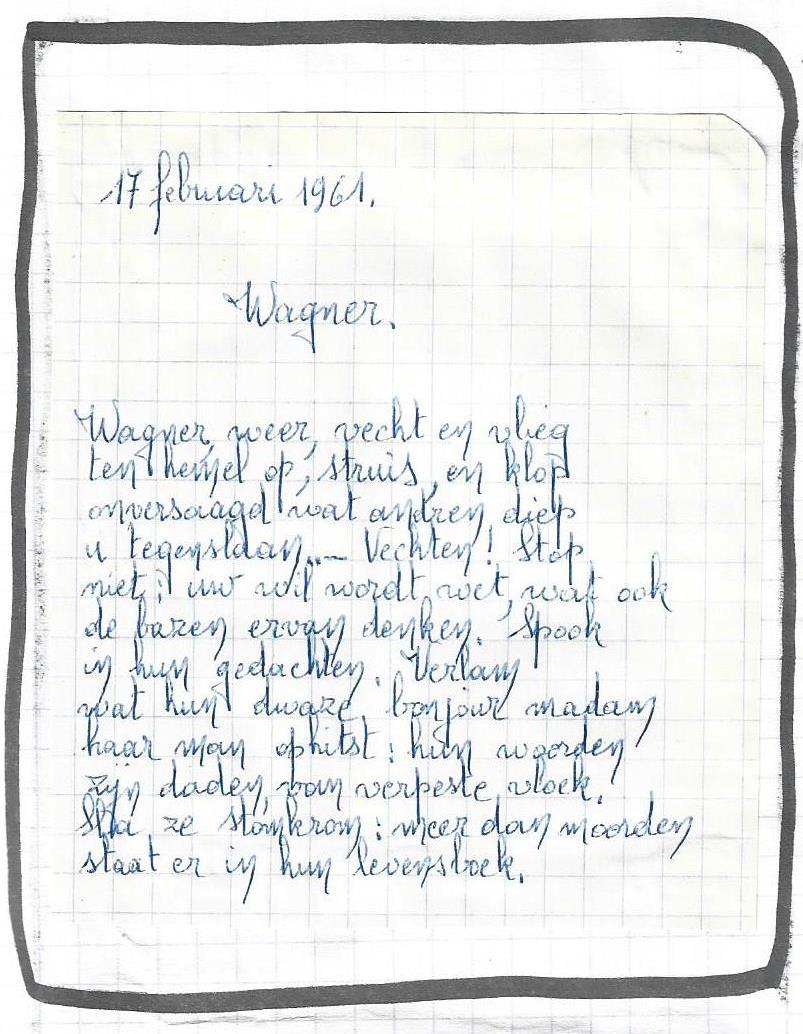 17 februari 1961.
Wagner.
Wagner, weer, vecht en vlieg
ten hemel op, struis, en klop
onversaagd wat andren diep
u tegenslaan... Vechten! Stop
niet: uw wil wordt wet, wat ook
de bazen ervan denken. Spook
in hun gedachten. Verlam
wat hun dwaze bonjour madam
haar man ophitst: hun woorden
zijn daden van verpeste vloek.
Sla ze stomkrom: meer dan moorden
staat er in hun levensboek.